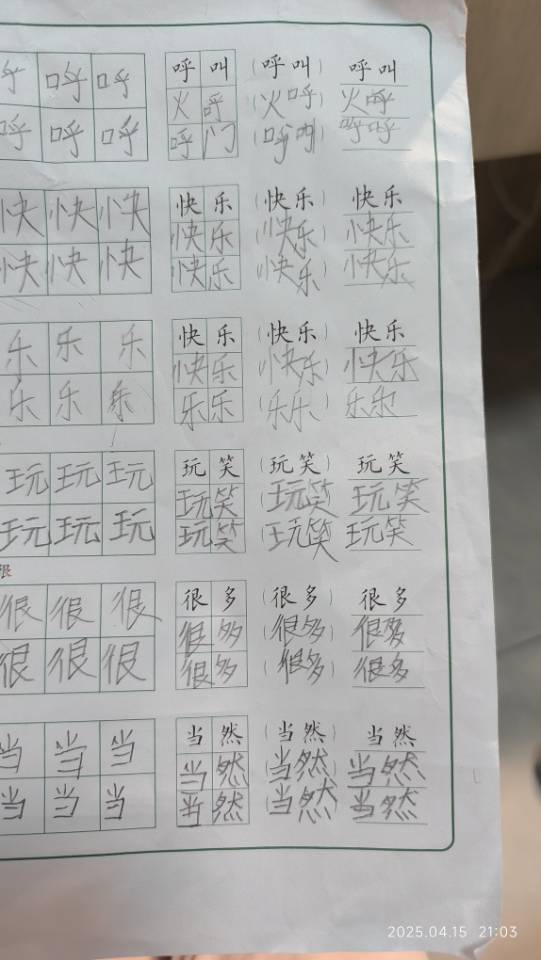 呼 呼 呼 呼 叫 (呼 叫) 呼 叫
火 呼 (火 呼) 火 呼
呼 呼 呼 呼 门 呼 呼
快 快 快 快 乐 (快 乐) 快 乐
快 乐 (快 乐) 快 乐
快 快 快 快 乐 (快 乐) 快 乐
乐 乐 乐 快 乐 (快 乐) 快 乐
快 乐 (快 乐) 快 乐
乐 乐 乐 乐 乐 (乐 乐) 乐 乐
玩 玩 玩 玩 笑 (玩 笑) 玩 笑
玩 笑 (玩 笑) 玩 笑
玩 玩 玩 玩 笑 (玩 笑) 玩 笑
很
很 很 很 很 多 (很 多) 很 多
很 多 (很 多) 很 多
很 很 很 很 多 (很 多) 很 多
当 当 当 当 然 (当 然) 当 然
当 然 (当 然) 当 然
当 当 当 当 然 (当 然) 当 然
2025.04.15 21:03